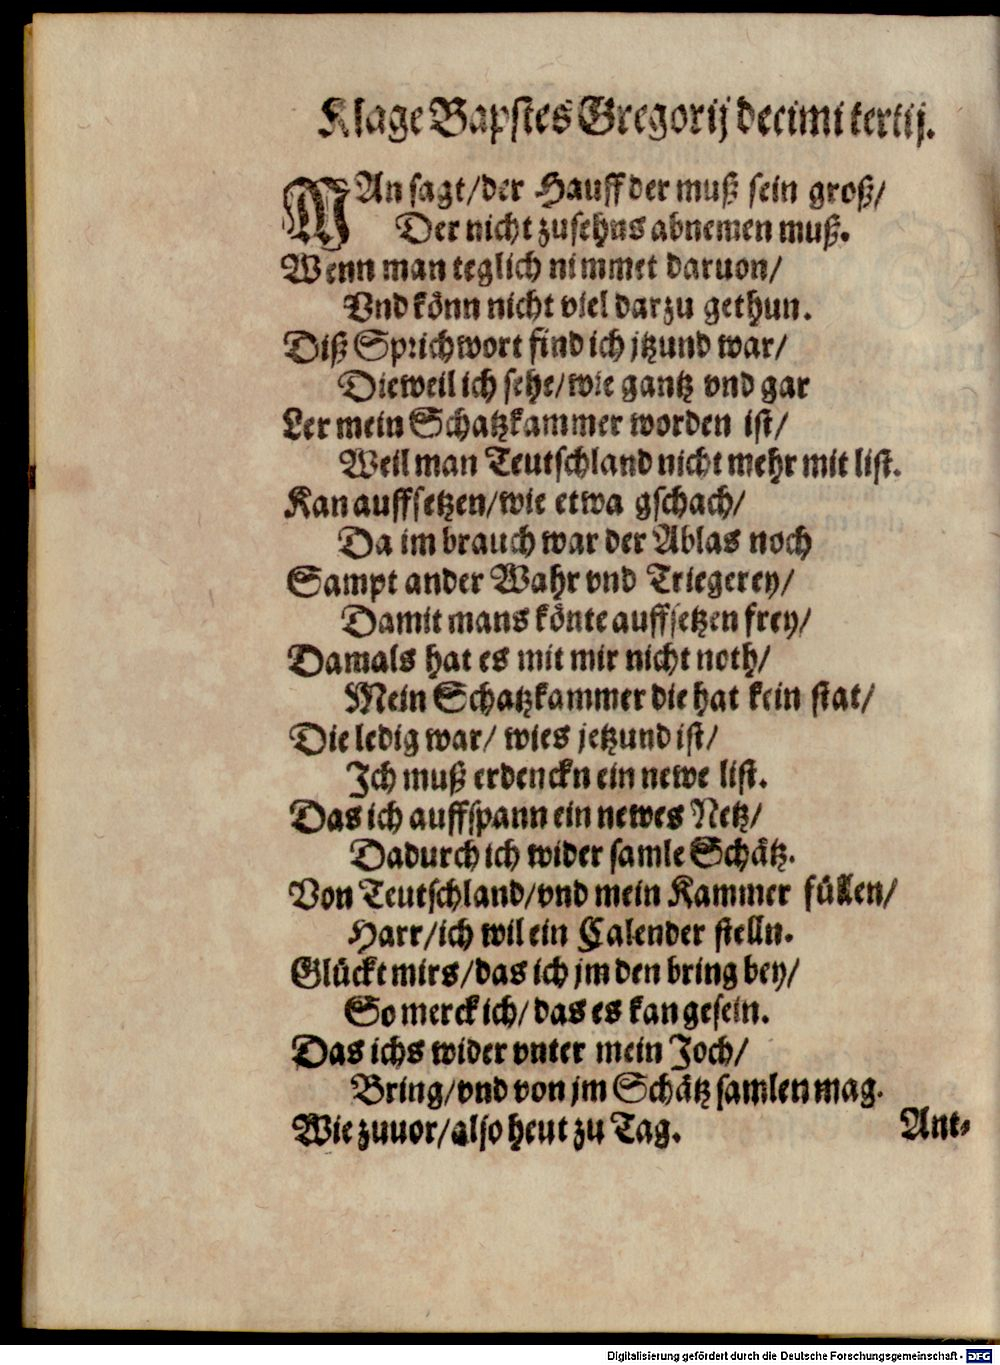 Klage Bapstes Gregorij decimi tertij.
MAn sagt/der Hauff der muß sein groß/
Der nicht zusehns abnemen muß.
Wenn man teglich nimmet daruon/
Vnd könn nicht viel darzu gethun.
Diß Sprichwort find ich jtzund war/
Dieweil ich sehe/wie gantz vnd gar
Ler mein Schatzkammer worden ist/
Weil man Teutschland nicht mehr mit list.
Kan auffsetzen/wie etwa gschach/
Da im brauch war der Ablas noch
Sampt ander Wahr vnd Triegerey/
Damit mans könte auffsetzen frey/
Damals hat es mit mir nicht noth/
Mein Schatzkammer die hat kein stat/
Die ledig war/ wies jetzund ist/
Ich muß erdenckn ein newe list.
Das ich auffspann ein newes Netz/
Dadurch ich wider samle Schätz.
Von Teutschland/vnd mein Kammer füllen/
Harr/ich wil ein Calender stelln.
Glückt mirs/das ich jm den bring bey/
So merck ich/ das es kan gesein.
Das ichs wider vnter mein Joch/
Bring/vnd von jm Schätz samlen mag.
Wie zuuor/also heut zu Tag.
Ant-
Digitalisierung gefördert durch die Deutsche Forschungsgemeinschaft - DFG